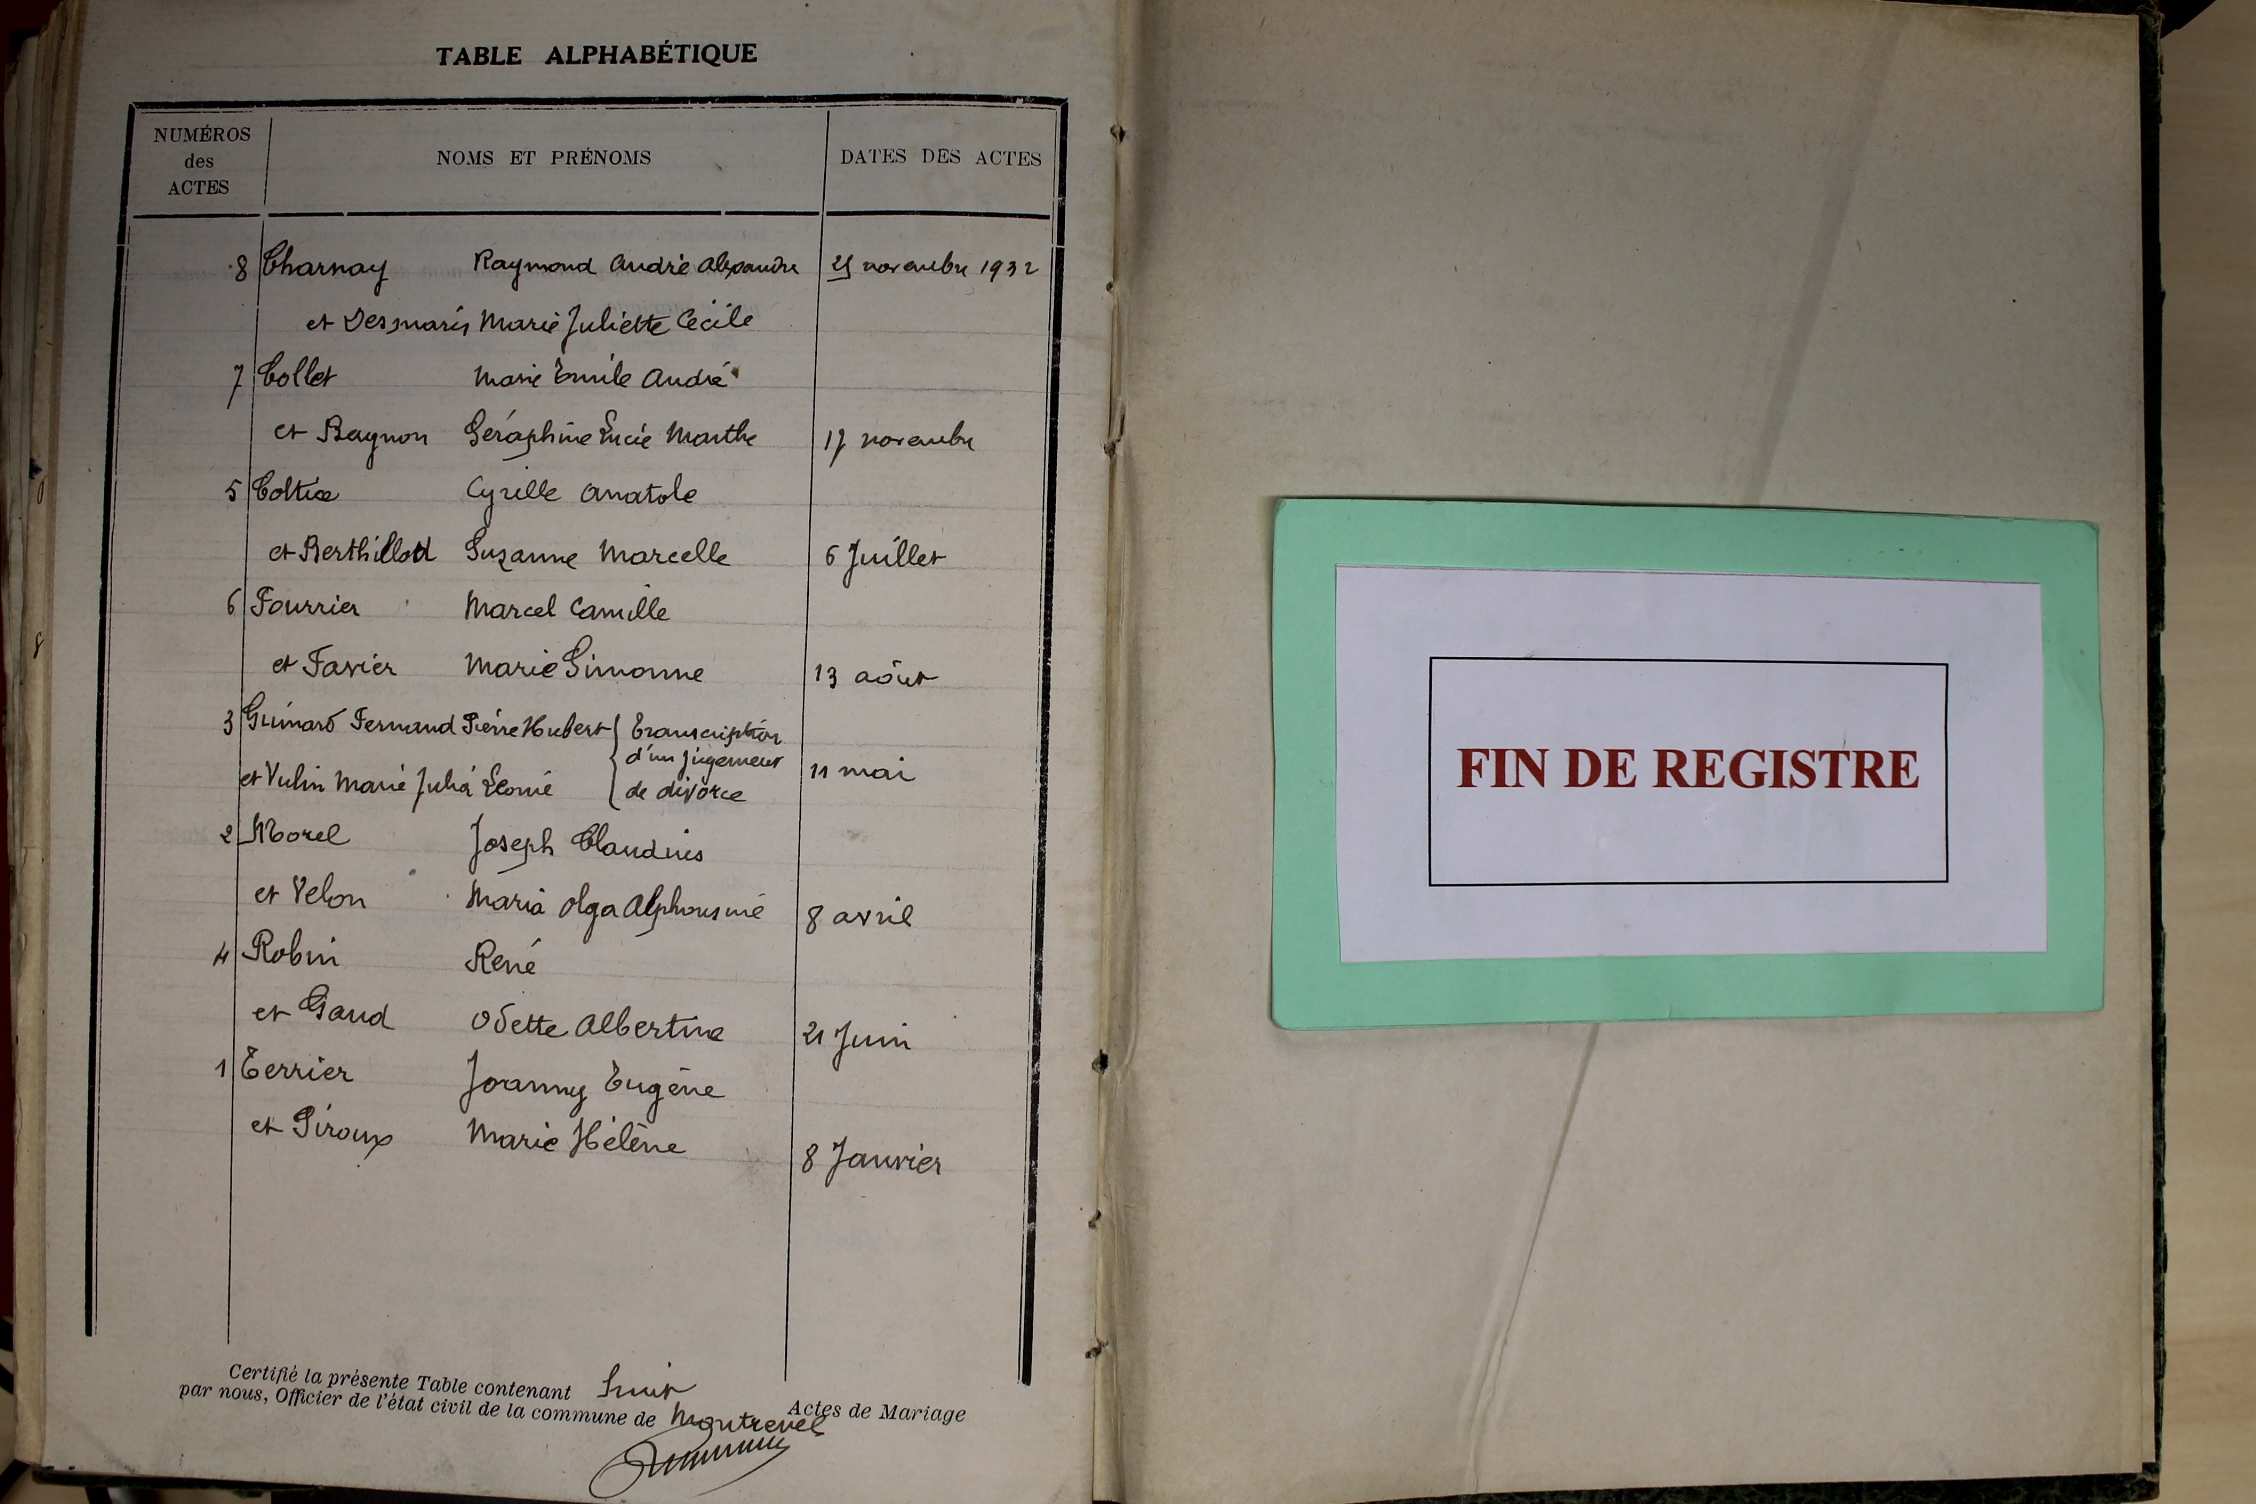 TABLE ALPHABÉTIQUE
NUMÉROS des ACTES NOMS ET PRÉNOMS DATES DES ACTES
8 Charnay Raymond André Alexandre 25 novembre 1932
et Desmaris Marie Juliette Cécile
7 Collet Marie Emile André
et Raynon Séraphine Lucie Marthe 17 novembre
5 Coltice Cyrille Anatole
et Berthillod Suzanne Marcelle 6 Juillet
6 Fourrier Marcel Camille
et Favier Marie Simonne 13 août
3 Guinard Fernand Pierre Hubert Transcription
d'un jugement
et Vulin Marie Julia Léonie de divorce 11 mai
2 Morel Joseph Claudius
et Velon Maria Olga Alphonsine 8 avril
4 Robin René
et Gaud Odette Albertine 21 Juin
1 Terrier Joanny Eugène
et Giroux Marie Hélène 8 Janvier
Certifié la présente Table contenant huit Actes de Mariage
par nous, Officier de l'état civil de la commune de Montrevel
FIN DE REGISTRE